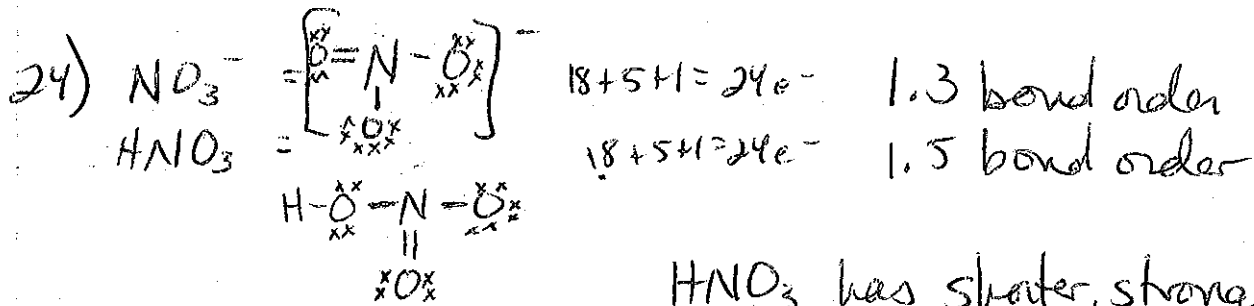 24) NO₃⁻ = [O=N-O]⁻ 18+5+1=24e⁻ 1.3 bond order
O
HNO₃ = 18+5+1=24e⁻ 1.5 bond order
H-O-N-O
||
O
HNO₃ has shorter, strong